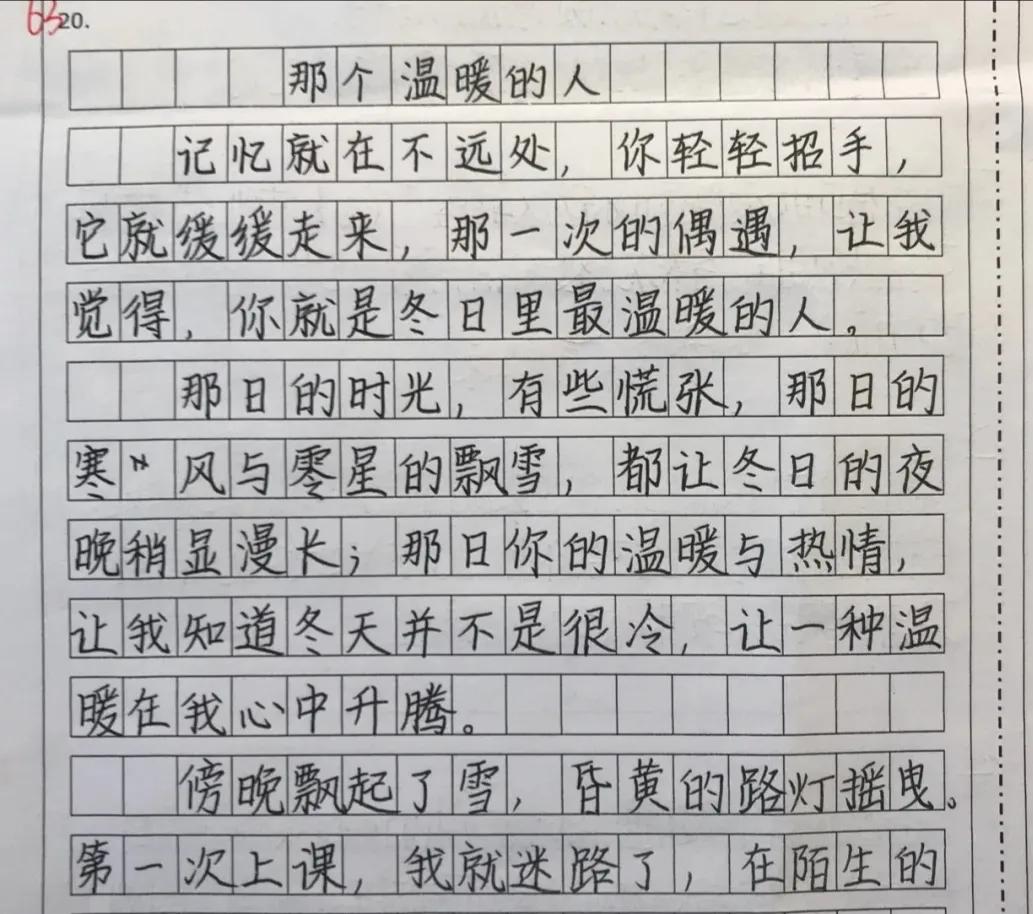 63
20.
那个温暖的人
记忆就在不远处，你轻轻招手，
它就缓缓走来，那一次的偶遇，让我
觉得，你就是冬日里最温暖的人。
那日的时光，有些慌张，那日的
寒风与零星的飘雪，都让冬日的夜
晚稍显漫长；那日你的温暖与热情，
让我知道冬天并不是很冷，让一种温
暖在我心中升腾。
傍晚飘起了雪，昏黄的路灯摇曳。
第一次上课，我就迷路了，在陌生的